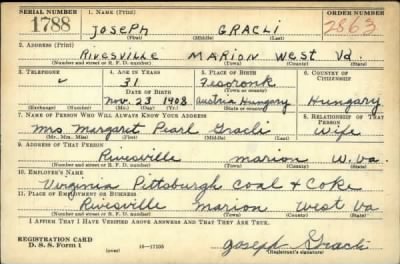 SERIAL NUMBER 1. NAME (Print) ORDER NUMBER
1788 JOSEPH GRACLI 2863
(First) (Middle) (Last)
2. ADDRESS (Print)
RIVESVILLE MARION West Va.
(Number and street or R. F. D. number) (Town) (County) (State)
3. TELEPHONE 4. AGE IN YEARS 5. PLACE OF BIRTH 6. COUNTRY OF CITIZENSHIP
31
DATE OF BIRTH (Town or county)
Nov. 23 1908 Austria Hungary Hungary
(Exchange) (Number) (Mo.) (Day) (Yr.) (State or country)
7. NAME OF PERSON WHO WILL ALWAYS KNOW YOUR ADDRESS 8. RELATIONSHIP OF THAT PERSON
Mrs. Margaret Pearl Gracli Wife
(Mr., Mrs., Miss) (First) (Middle) (Last)
9. ADDRESS OF THAT PERSON
Rivesville Marion W. Va.
(Number and street or R. F. D. number) (Town) (County) (State)
10. EMPLOYER'S NAME
Virginia Pittsburgh Coal & Coke
11. PLACE OF EMPLOYMENT OR BUSINESS
Rivesville Marion West Va
(Number and street or R. F. D. number) (Town) (County) (State)
I AFFIRM THAT I HAVE VERIFIED ABOVE ANSWERS AND THAT THEY ARE TRUE.
REGISTRATION CARD
D. S. S. Form 1 (over) 16-17105 Joseph Gracli